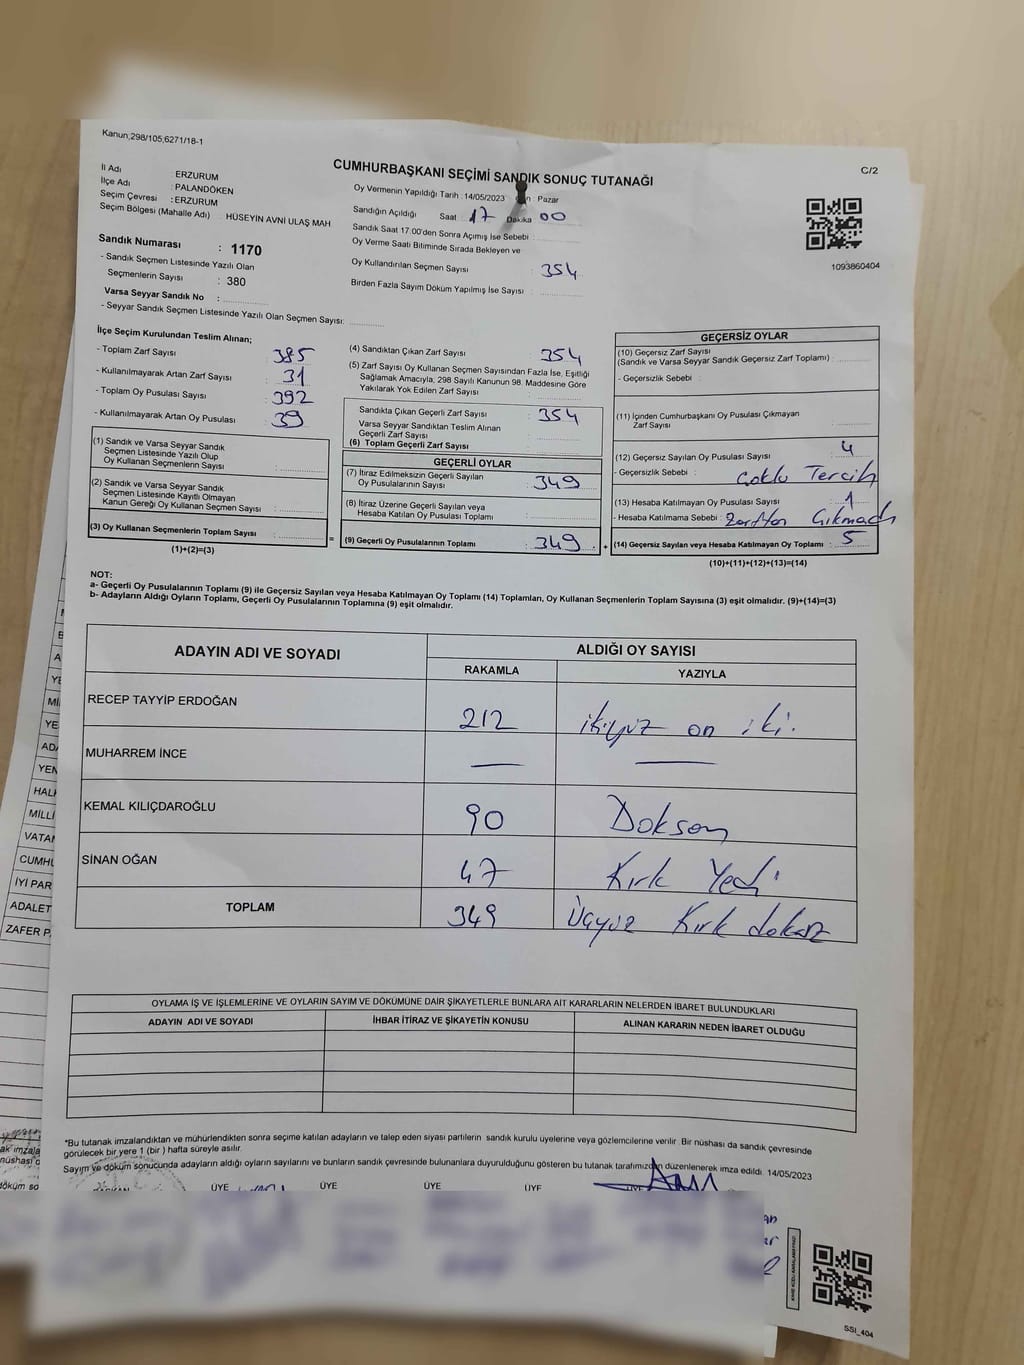 Kanun,298/105,6271/18-1
CUMHURBAŞKANI SEÇİMİ SANDIK SONUÇ TUTANAĞI
C/2
İl Adı : ERZURUM
İlçe Adı : PALANDÖKEN
Seçim Çevresi : ERZURUM
Seçim Bölgesi (Mahalle Adı) : HÜSEYİN AVNİ ULAŞ MAH
Sandık Numarası : 1170
- Sandık Seçmen Listesinde Yazılı Olan
Seçmenlerin Sayısı : 380
Varsa Seyyar Sandık No :
- Seyyar Sandık Seçmen Listesinde Yazılı Olan Seçmen Sayısı:
Oy Vermenin Yapıldığı Tarih : 14/05/2023 Pazar
Sandığın Açıldığı Saat 17 Dakika 00
Sandık Saat 17:00'den Sonra Açımış İse Sebebi :
Oy Verme Saati Bitiminde Sırada Bekleyen ve
Oy Kullandırılan Seçmen Sayısı : 354
Birden Fazla Sayım Döküm Yapılmış İse Sayısı :
1093860404
İlçe Seçim Kurulundan Teslim Alınan;
- Toplam Zarf Sayısı : 385
- Kullanılmayarak Artan Zarf Sayısı : 31
- Toplam Oy Pusulası Sayısı : 392
- Kullanılmayarak Artan Oy Pusulası : 39
(1) Sandık ve Varsa Seyyar Sandık
Seçmen Listesinde Yazılı Olup
Oy Kullanan Seçmenlerin Sayısı :
(2) Sandık ve Varsa Seyyar Sandık
Seçmen Listesinde Kayıtlı Olmayan
Kanun Gereği Oy Kullanan Seçmen Sayısı :
(3) Oy Kullanan Seçmenlerin Toplam Sayısı :
(1)+(2)=(3)
(4) Sandıktan Çıkan Zarf Sayısı : 354
(5) Zarf Sayısı Oy Kullanan Seçmen Sayısından Fazla İse, Eşitliği
Sağlamak Amacıyla, 298 Sayılı Kanunun 98. Maddesine Göre
Yakılarak Yok Edilen Zarf Sayısı :
Sandıkta Çıkan Geçerli Zarf Sayısı : 354
Varsa Seyyar Sandıktan Teslim Alınan
Geçerli Zarf Sayısı :
(6) Toplam Geçerli Zarf Sayısı
GEÇERLİ OYLAR
(7) İtiraz Edilmeksizin Geçerli Sayılan
Oy Pusulalarının Sayısı : 349
(8) İtiraz Üzerine Geçerli Sayılan veya
Hesaba Katılan Oy Pusulası Toplamı :
(9) Geçerli Oy Pusulalarının Toplamı : 349
GEÇERSİZ OYLAR
(10) Geçersiz Zarf Sayısı
(Sandık ve Varsa Seyyar Sandık Geçersiz Zarf Toplamı) :
- Geçersizlik Sebebi :
(11) İçinden Cumhurbaşkanı Oy Pusulası Çıkmayan
Zarf Sayısı :
(12) Geçersiz Sayılan Oy Pusulası Sayısı : 4
- Geçersizlik Sebebi : Çoklu Tercih
(13) Hesaba Katılmayan Oy Pusulası Sayısı : 1
- Hesaba Katılmama Sebebi : Zarftan Çıkmadı
(14) Geçersiz Sayılan veya Hesaba Katılmayan Oy Toplamı : 5
(10)+(11)+(12)+(13)=(14)
NOT:
a- Geçerli Oy Pusulalarının Toplamı (9) ile Geçersiz Sayılan veya Hesaba Katılmayan Oy Toplamı (14) Toplamları, Oy Kullanan Seçmenlerin Toplam Sayısına (3) eşit olmalıdır. (9)+(14)=(3)
b- Adayların Aldığı Oyların Toplamı, Geçerli Oy Pusulalarının Toplamına (9) eşit olmalıdır.
ADAYIN ADI VE SOYADI
ALDIĞI OY SAYISI
RAKAMLA YAZIYLA
RECEP TAYYİP ERDOĞAN 212 ikiyüz on iki.
MUHARREM İNCE —
KEMAL KILIÇDAROĞLU 90 Doksan
SİNAN OĞAN 47 Kırk Yedi
TOPLAM 349 Üçyüz Kırk dokuz
OYLAMA İŞ VE İŞLEMLERİNE VE OYLARIN SAYIM VE DÖKÜMÜNE DAİR ŞİKAYETLERLE BUNLARA AİT KARARLARIN NELERDEN İBARET BULUNDUKLARI
ADAYIN ADI VE SOYADI İHBAR İTİRAZ VE ŞİKAYETİN KONUSU ALINAN KARARIN NEDEN İBARET OLDUĞU
*Bu tutanak imzalandıktan ve mühürlendikten sonra seçime katılan adayların ve talep eden siyasi partilerin sandık kurulu üyelerine veya gözlemcilerine verilir. Bir nüshası da sandık çevresinde
görülecek bir yere 1 (bir) hafta süreyle asılır.
Sayım ve döküm sonucunda adayların aldığı oyların sayılarını ve bunların sandık çevresinde bulunanlara duyurulduğunu gösteren bu tutanak tarafımızdan düzenlenerek imza edildi. 14/05/2023
ÜYE ÜYE ÜYE ÜYE ÜYE
SSI_404
YE
Mİ
YE
ADA
YEN
HALI
MİLLİ
VATAN
CUMHU
İYİ PAR
ADALET
ZAFER P